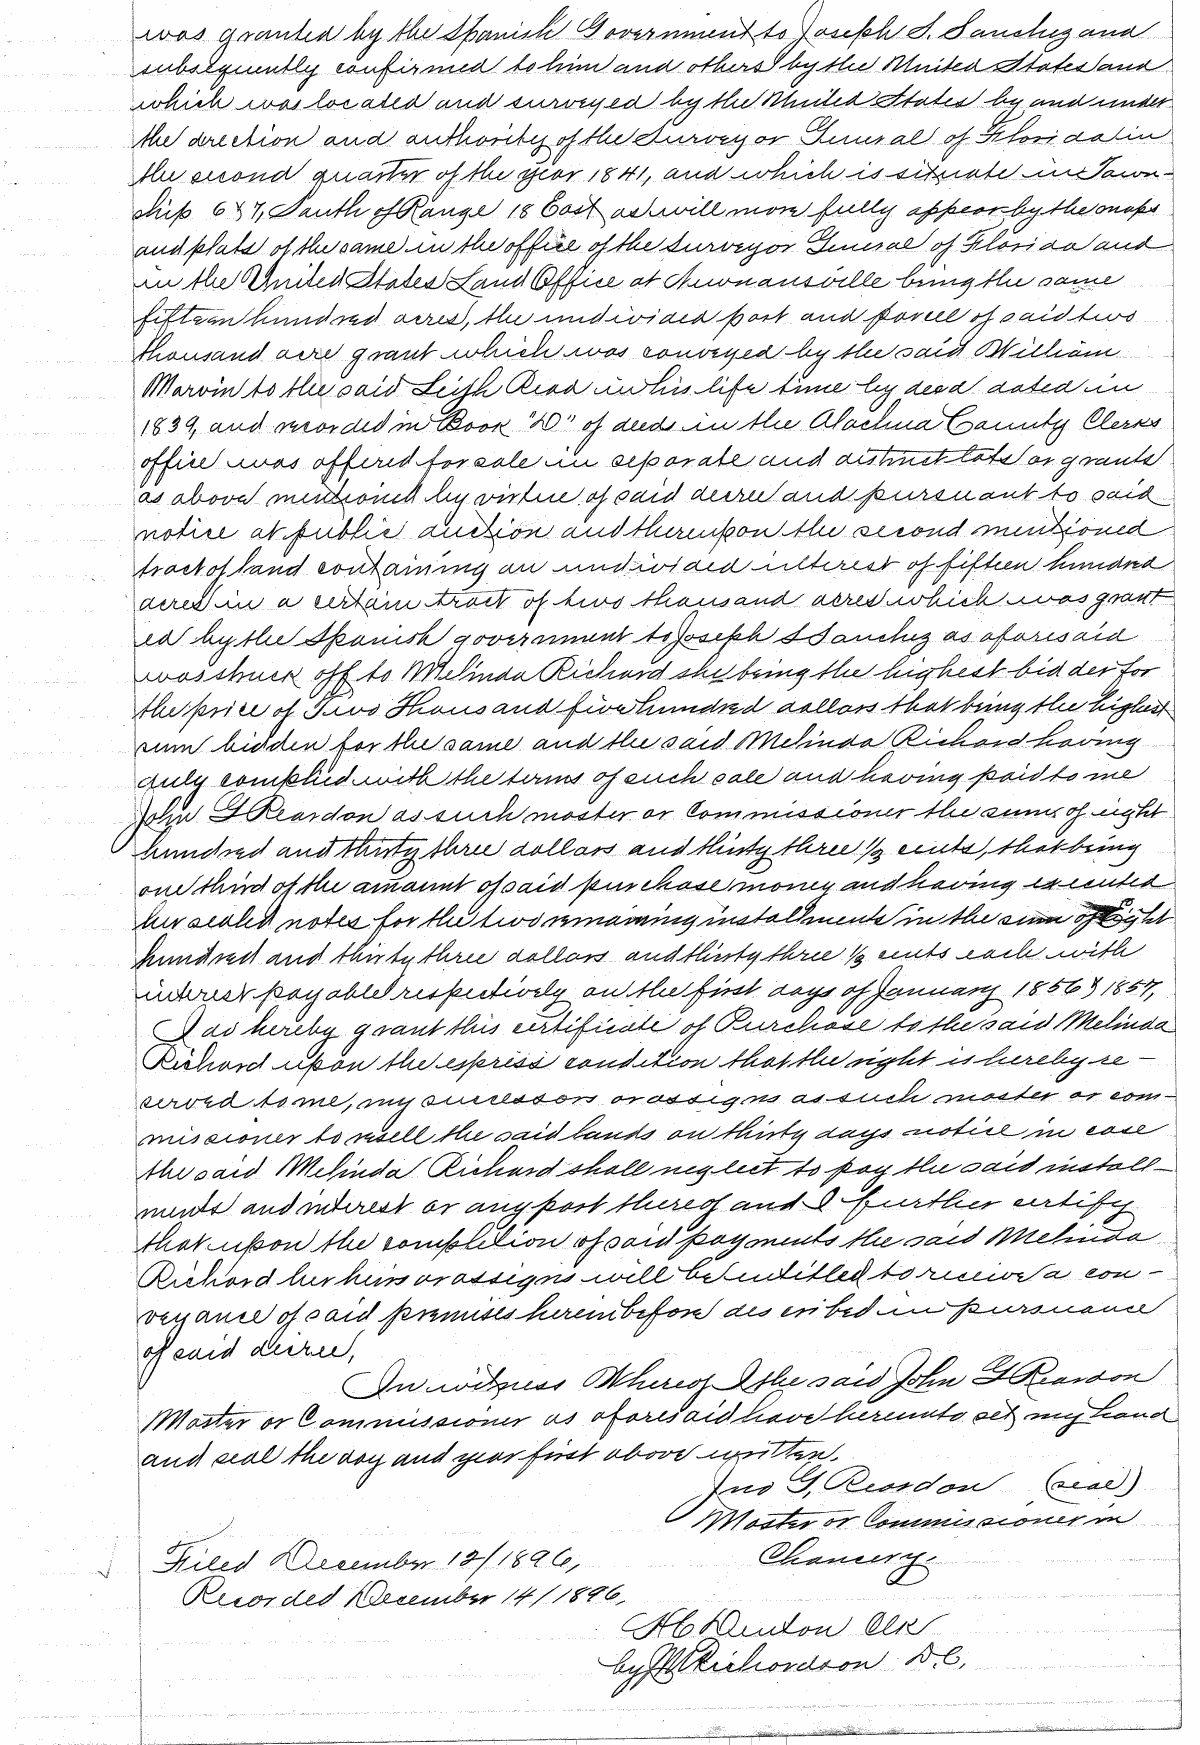 was granted by the Spanish Government to Joseph S. Sanchez and
subsequently confirmed to him and others by the United States and
which was located and surveyed by the United States by and under
the direction and authority of the Surveyor General of Florida in
the second quarter of the year 1841, and which is situate in Town-
ship 6 & 7, South of Range 18 East as will more fully appear by the maps
and plats of the same in the office of the Surveyor General of Florida and
in the United States Land Office at Newnansville being the same
fifteen hundred acres, the undivided part and parcell of said two
thousand acre grant which was conveyed by the said William
Marvin to the said Leigh Read in his life time by deed dated in
1839, and recorded in Book "D" of deeds in the Alachua County Clerks
office was offered for sale in separate and distinct lots or grants
as above mentioned by virtue of said decree and pursuant to said
notice at public auction and thereupon the second mentioned
tract of land containing an undivided interest of fifteen hundred
acres in a certain tract of two thousand acres which was grant
ed by the Spanish government to Joseph S Sanchez as aforesaid
was struck off to Melinda Richard she being the highest bidder for
the price of Two Thousand five hundred dollars that being the highest
sum bidden for the same and the said Melinda Richard having
duly complied with the terms of such sale and having paid to me
John G Reardon as such master or Commissioner the sum of eight
hundred and thirty three dollars and thirty three 1/3 cents, that being
one third of the amount of said purchase money and having executed
her sealed notes for the two remaining installments in the sum of Eight
hundred and thirty three dollars and thirty three 1/3 cents each with
interest payable respectively on the first days of January 1856 & 1857,
I do hereby grant this certificate of Purchase to the said Melinda
Richard upon the express condition that the right is hereby re-
served to me, my successors or assigns as such master or com-
missioner to resell the said lands on thirty days notice in case
the said Melinda Richard shall neglect to pay the said install-
ments and interest or any part thereof and I further certify
that upon the completion of said payments the said Melinda
Richard her heirs or assigns will be entitled to receive a con-
veyance of said premises hereinbefore described in pursuance
of said decree,
In witness Whereof I the said John G Reardon
Master or Commissioner as aforesaid have hereunto set my hand
and seal the day and year first above written.
Jno G, Reardon (seal)
Master or Commissioner in
Chancery.
Filed December 12/1896,
Recorded December 14/1896,
H C Denton Clk
by Richardson D.C.